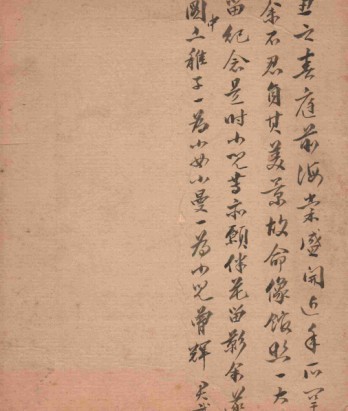 丑之春庭前海棠盛開近年所罕
余不忍負其美景故命像館照一大
留紀念是时小兒等亦願伴花留影余遂
圖中上稚子一為小女小曼一為小兒曾輝